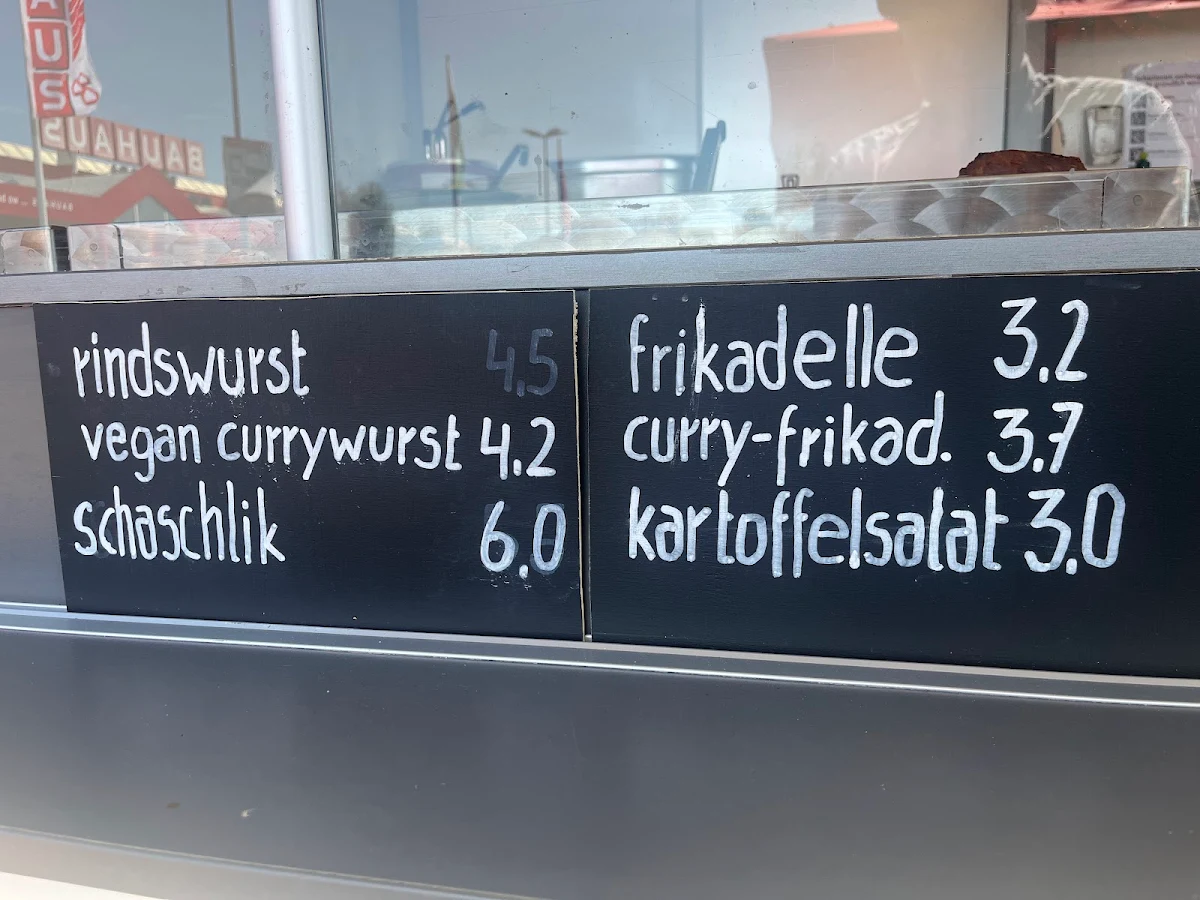 AUS
BAUHAUS
rindswurst 4.5
vegan currywurst 4.2
schaschlik 6.0
frikadelle 3.2
curry-frikad. 3.7
kartoffelsalat 3.0